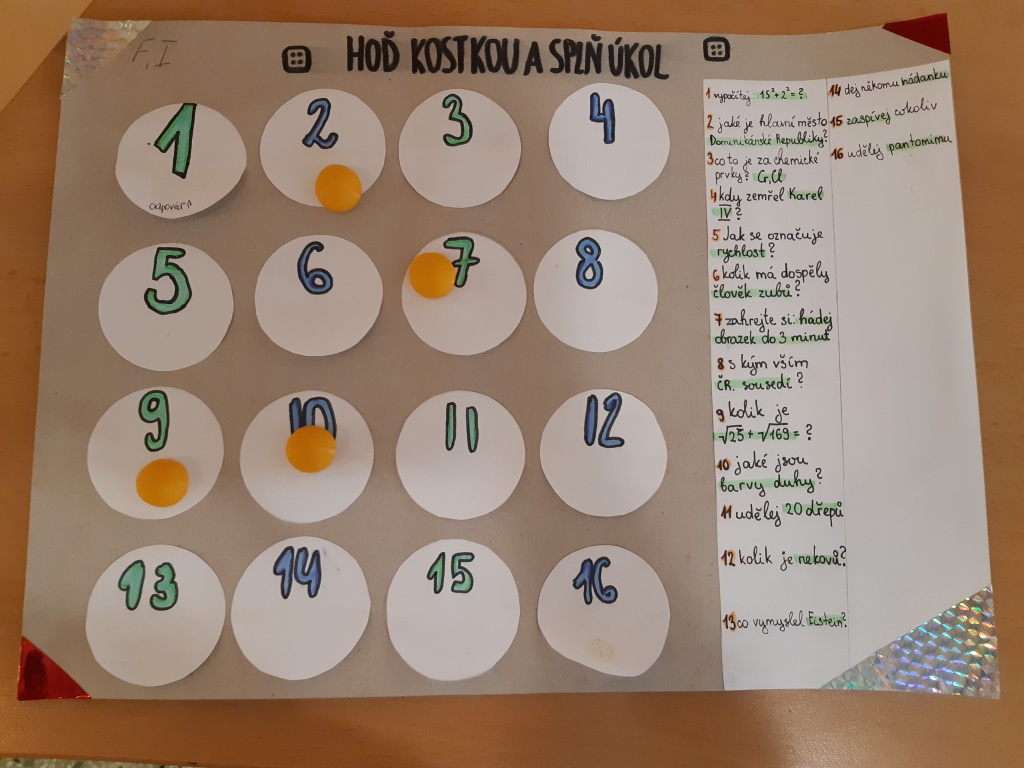 F, I
HOĎ KOSTKOU A SPLŇ ÚKOL
1
odpověz!!
2
3
4
5
6
7
8
9
10
11
12
13
14
15
16
1 vypočítej: 15² + 2² = ?
2 jaké je hlavní město
Dominikánské Republiky?
3 co to je za chemické
prvky? Cr, Cl
4 kdy zemřel Karel
IV ?
5 Jak se označuje
rychlost?
6 kolik má dospělý
člověk zubů?
7 zahrejte si: hádej
obrazek do 3 minut
8 s kým vším
ČR sousedí ?
9 kolik je
√25 + √169 = ?
10 jaké jsou
barvy duhy?
11 udělej 20 dřepů
12 kolik je nekovů?
13 co vymyslel Eistein?
14 dej někomu hádanku
15 zaspívej cokoliv
16 udělej pantomimu